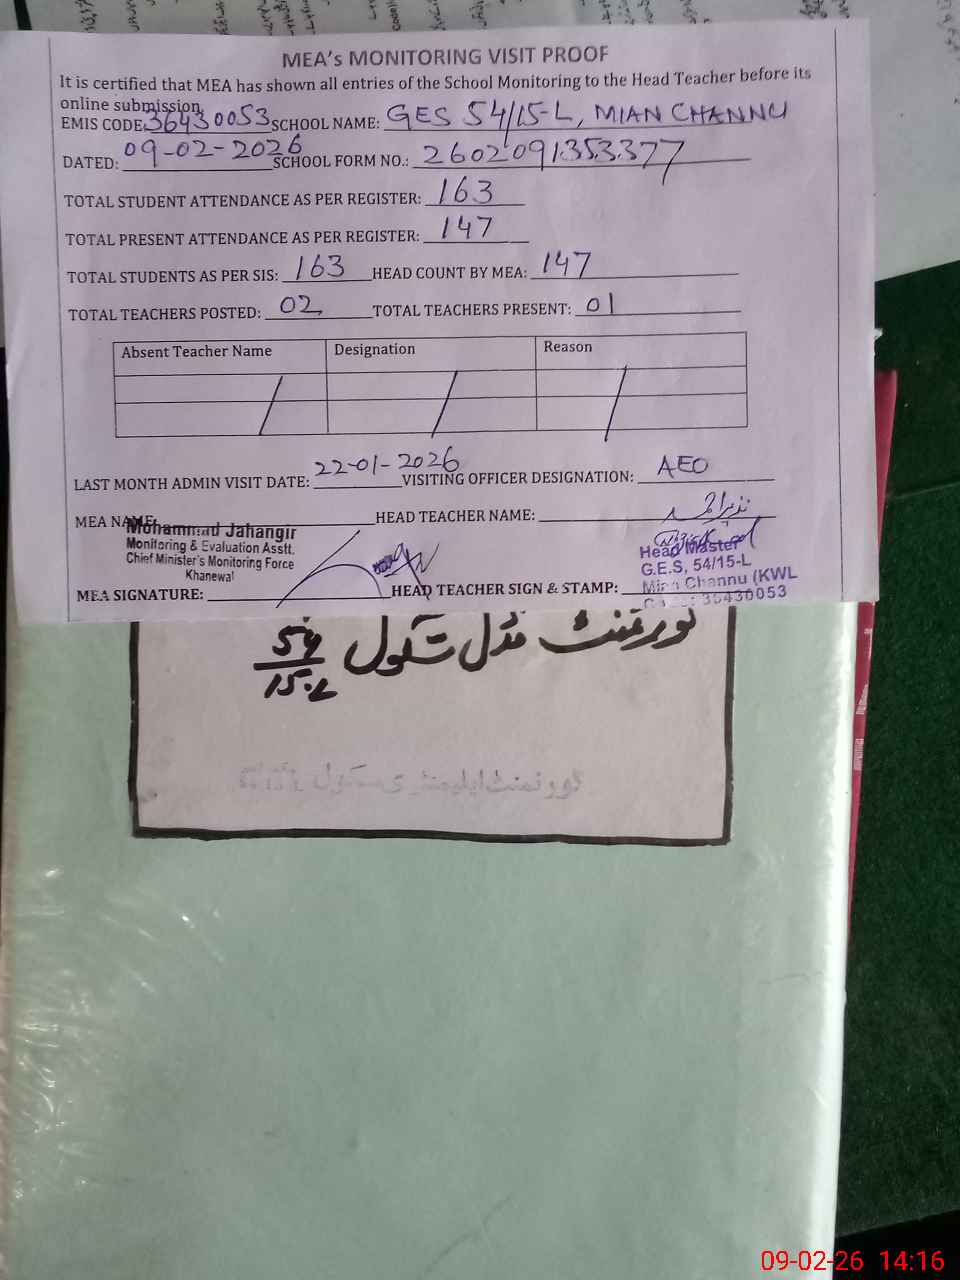 MEA's MONITORING VISIT PROOF
It is certified that MEA has shown all entries of the School Monitoring to the Head Teacher before its
online submission.
EMIS CODE: 36430053 SCHOOL NAME: GES 54/15-L, MIAN CHANNU
DATED: 09-02-2026 SCHOOL FORM NO.: 2602091353377
TOTAL STUDENT ATTENDANCE AS PER REGISTER: 163
TOTAL PRESENT ATTENDANCE AS PER REGISTER: 147
TOTAL STUDENTS AS PER SIS: 163 HEAD COUNT BY MEA: 147
TOTAL TEACHERS POSTED: 02 TOTAL TEACHERS PRESENT: 01
Absent Teacher Name Designation Reason
LAST MONTH ADMIN VISIT DATE: 22-01-2026 VISITING OFFICER DESIGNATION: AEO
MEA NAME: HEAD TEACHER NAME: نذیر احمد
Mohammad Jahangir
Monitoring & Evaluation Asstt.
Chief Minister's Monitoring Force
Khanewal
MEA SIGNATURE: HEAD TEACHER SIGN & STAMP:
Head Master
G.E.S, 54/15-L
Mian Channu (KWL
گورنمنٹ مڈل سکول 54/15.L
گورنمنٹ ایلیمنٹری سکول
09-02-26 14:16